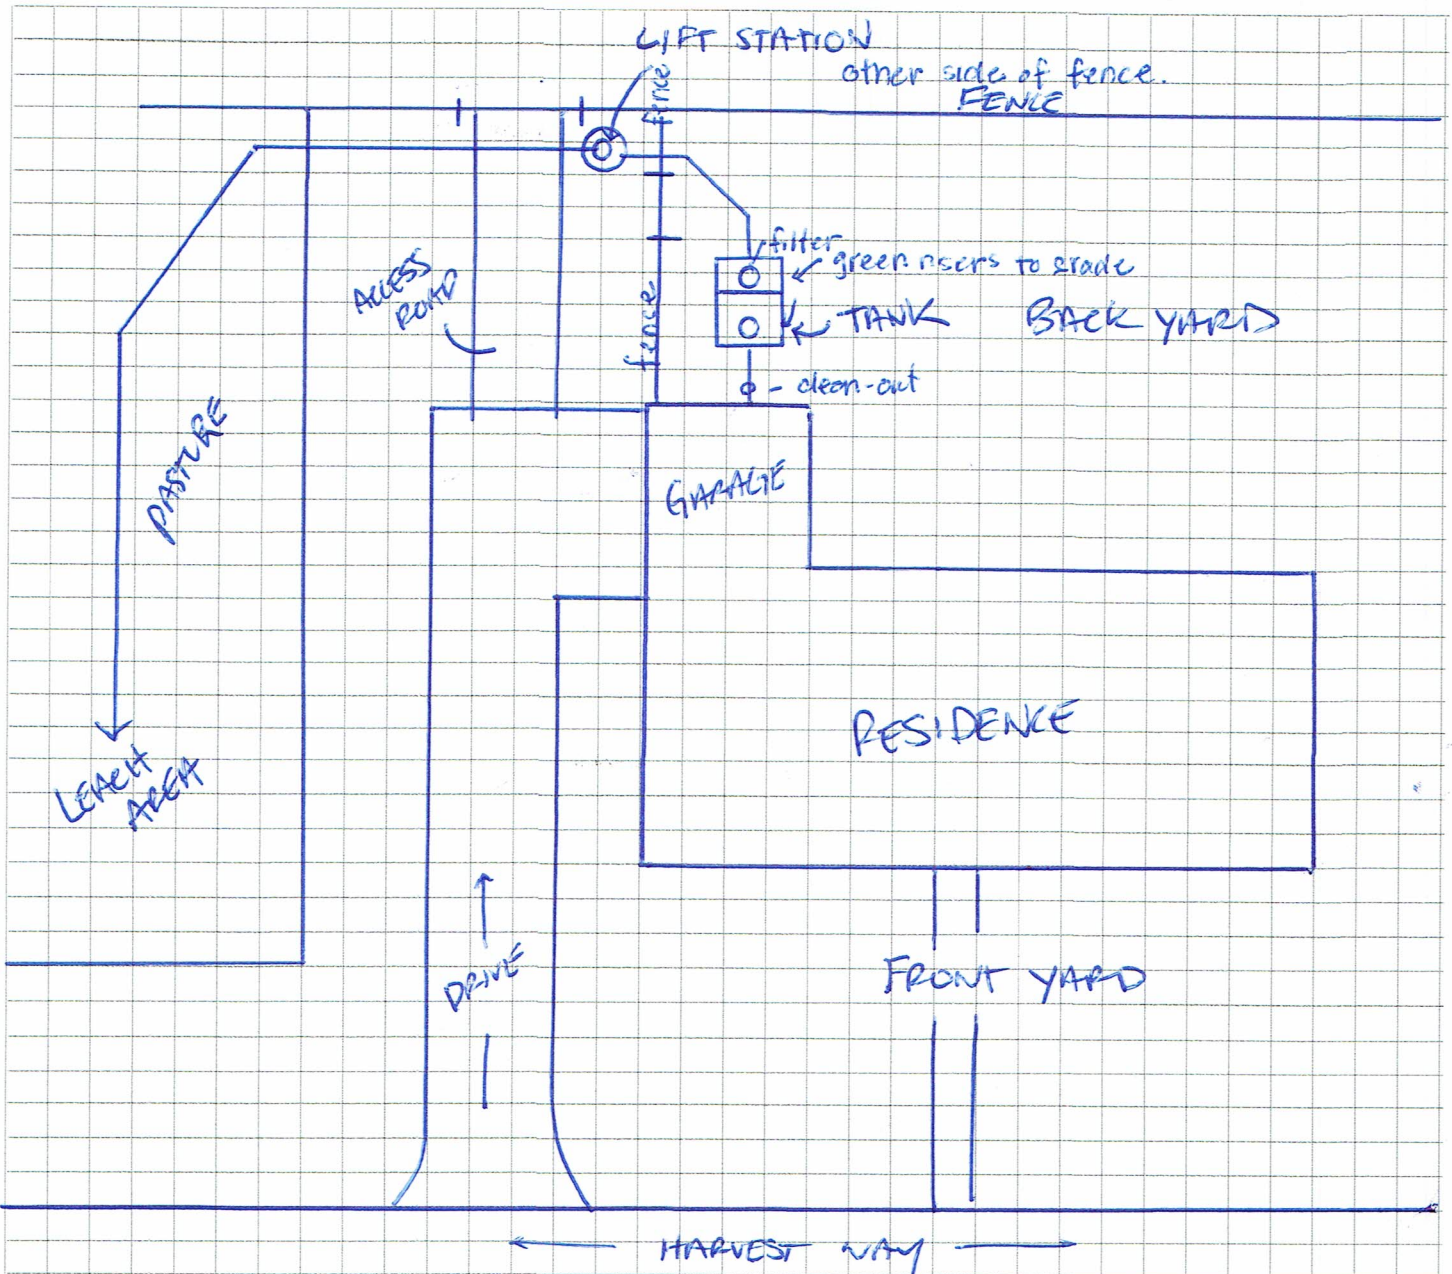 LIFT STATION
other side of fence.
FENCE
fence
filter
green risers to grade
TANK
BACK YARD
ACCESS
ROAD
fence
clean-out
PASTURE
GARAGE
RESIDENCE
LEACH
AREA
DRIVE
FRONT YARD
HARVEST WAY